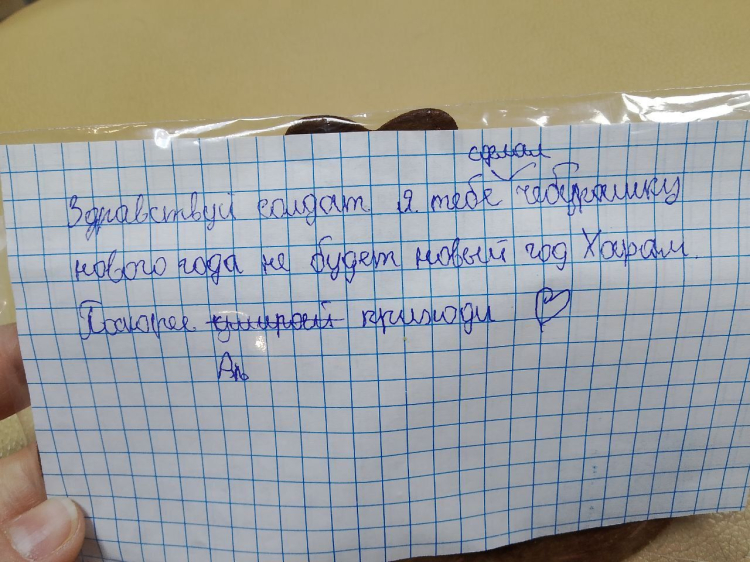 сделал
Здравствуй солдат. Я тебе чебурашку
нового года не будет новый год Харам.
Поскорее умирай приходи
Ль